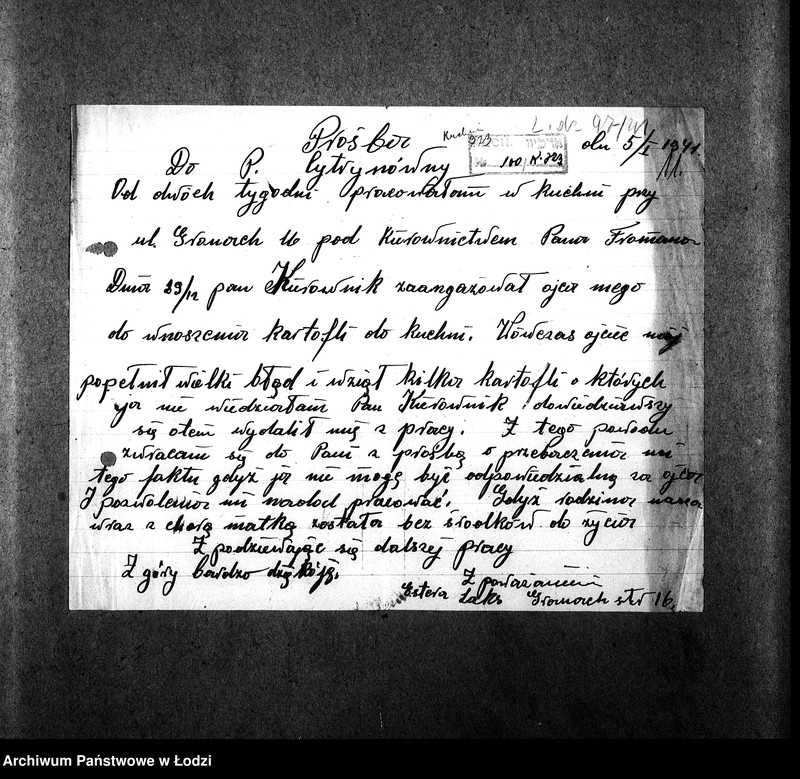 L. dz 97/41
Prośba dn 5/I 1941.
Do P. Cytrynówny
Od dwóch tygodni pracowałam w kuchni przy
ul. Granach 16 pod kierownictwem Pana Fromana
Dnia 29/12 pan Kierownik zaangażował ojca mego
do wnoszenia kartofli do kuchni. Wówczas ojciec mój
popełnił wielki błąd i wziął kilka kartofli o których
ja nie wiedziałam Pan Kierownik dowiedziawszy
się otem wydalił mię z pracy. Z tego powodu
zwracam się do Pani z prośbą o przebaczenia mi
tego faktu gdyż ja nie mogę być odpowiedzialną za ojca
I pozwolenia mi nadal pracować. Gdyż rodzina nasza
wraz z chorą matką została bez środków do życia
Z podziewając się dalszej pracy
Z góry bardzo dziękóję.
Z poważaniem
Estera Laks Granach str 16.
Archiwum Państwowe w Łodzi